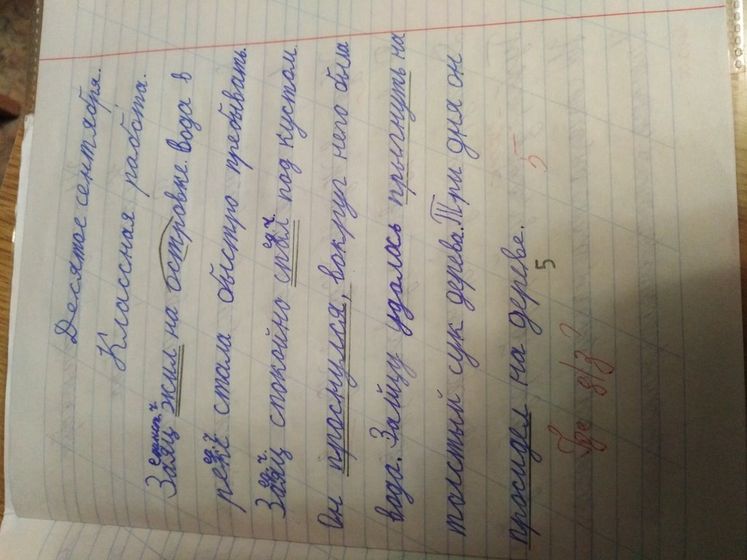 Десятое сентября.
Классная работа.
Заяц жил на островке. Вода в
реке стала быстро пребывать.
Заяц спокойно спал под кустом.
Он проснулся, вокруг него была
вода. Зайцу удалось прыгнуть на
толстый сук дерева. Три дня он
просидел на дереве. 5
5
Где д/з?